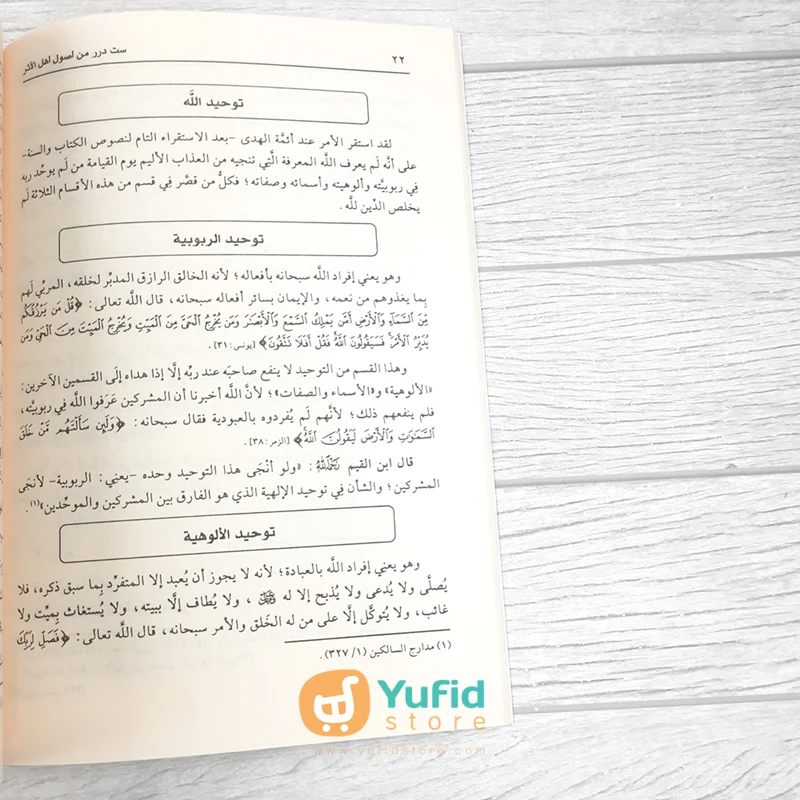 ٢٢
ست درر من أصول أهل الأثر
توحيد اللَّه
لقد استقر الأمر عند أئمَّة الهدى -بعد الاستقراء التام لنصوص الكتاب والسنة-
على أنَّه لَم يعرف اللَّه المعرفة الَّتِي تنجيه من العذاب الأليم يوم القيامة من لَم يوحِّد ربه
فِي ربوبيَّته وألوهيته وأسمائه وصفاته؛ فكلُّ من قصَّر فِي قسم من هذه الأقسام الثلاثة لَم
يخلص الدِّين للَّه.
توحيد الربوبية
وهو يعني إفراد اللَّه سبحانه بأفعاله؛ لأنه الخالق الرازق المدبِّر لخلقه، المربِّي لَهم
بِما يغذوهم من نعمه، والإيمان بسائر أفعاله سبحانه، قال اللَّه تعالى: ﴿قُلْ مَن يَرْزُقُكُم
مِّنَ السَّمَاءِ وَالْأَرْضِ أَمَّن يَمْلِكُ السَّمْعَ وَالْأَبْصَٰرَ وَمَن يُخْرِجُ الْحَيَّ مِنَ الْمَيِّتِ وَيُخْرِجُ الْمَيِّتَ مِنَ الْحَيِّ وَمَن
يُدَبِّرُ الْأَمْرَ فَسَيَقُولُونَ اللَّهُ فَقُلْ أَفَلَا تَتَّقُونَ﴾ [يونس: ٣١].
وهذا القسم من التوحيد لا ينفع صاحبَه عند ربِّه إلَّا إذا هداه إلَى القسمين الآخرين:
«الألوهية» و«الأسماء والصفات»؛ لأنَّ اللَّه أخبرنا أن المشركين عَرَفوا اللَّه فِي ربوبيَّته،
فلم ينفعهم ذلك؛ لأنَّهم لَم يُفردوه بالعبودية فقال سبحانه: ﴿وَلَئِن سَأَلْتَهُم مَّنْ خَلَقَ
السَّمَٰوَٰتِ وَالْأَرْضَ لَيَقُولُنَّ اللَّهُ﴾ [الزمر: ٣٨].
قال ابن القيم رَحِمَهُ اللَّهُ: «ولو أنْجَى هذا التوحيد وحده -يعني: الربوبية- لأنجَى
المشركين؛ والشأن فِي توحيد الإلهية الذي هو الفارق بين المشركين والموحِّدين»(١).
توحيد الألوهية
وهو يعني إفراد اللَّه بالعبادة؛ لأنه لا يجوز أن يُعبد إلا المتفرِّد بِما سبق ذكره، فلا
يُصلَّى ولا يُدعى ولا يُذبح إلا له ، ولا يُطاف إلَّا ببيته، ولا يُستغاث بِميِّت ولا
غائب، ولا يُتوكَّل إلَّا على من له الخَلق والأمر سبحانه، قال اللَّه تعالى: ﴿فَصَلِّ لِرَبِّكَ
(١) مدارج السالكين (١/ ٣٢٧).
Yufid
store
www.yufidstore.com